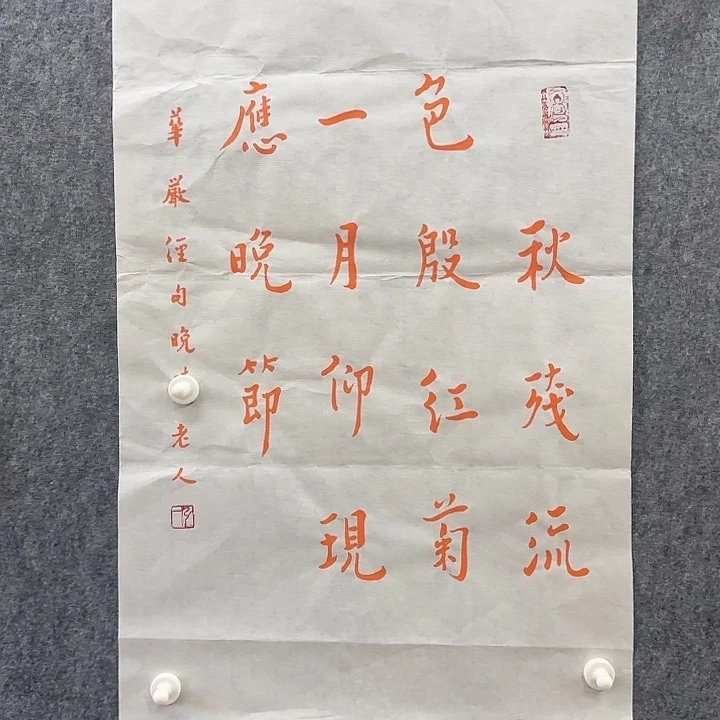 秋殘流
色殷紅菊
一月仰現
應晚節
華嚴經句晚老人